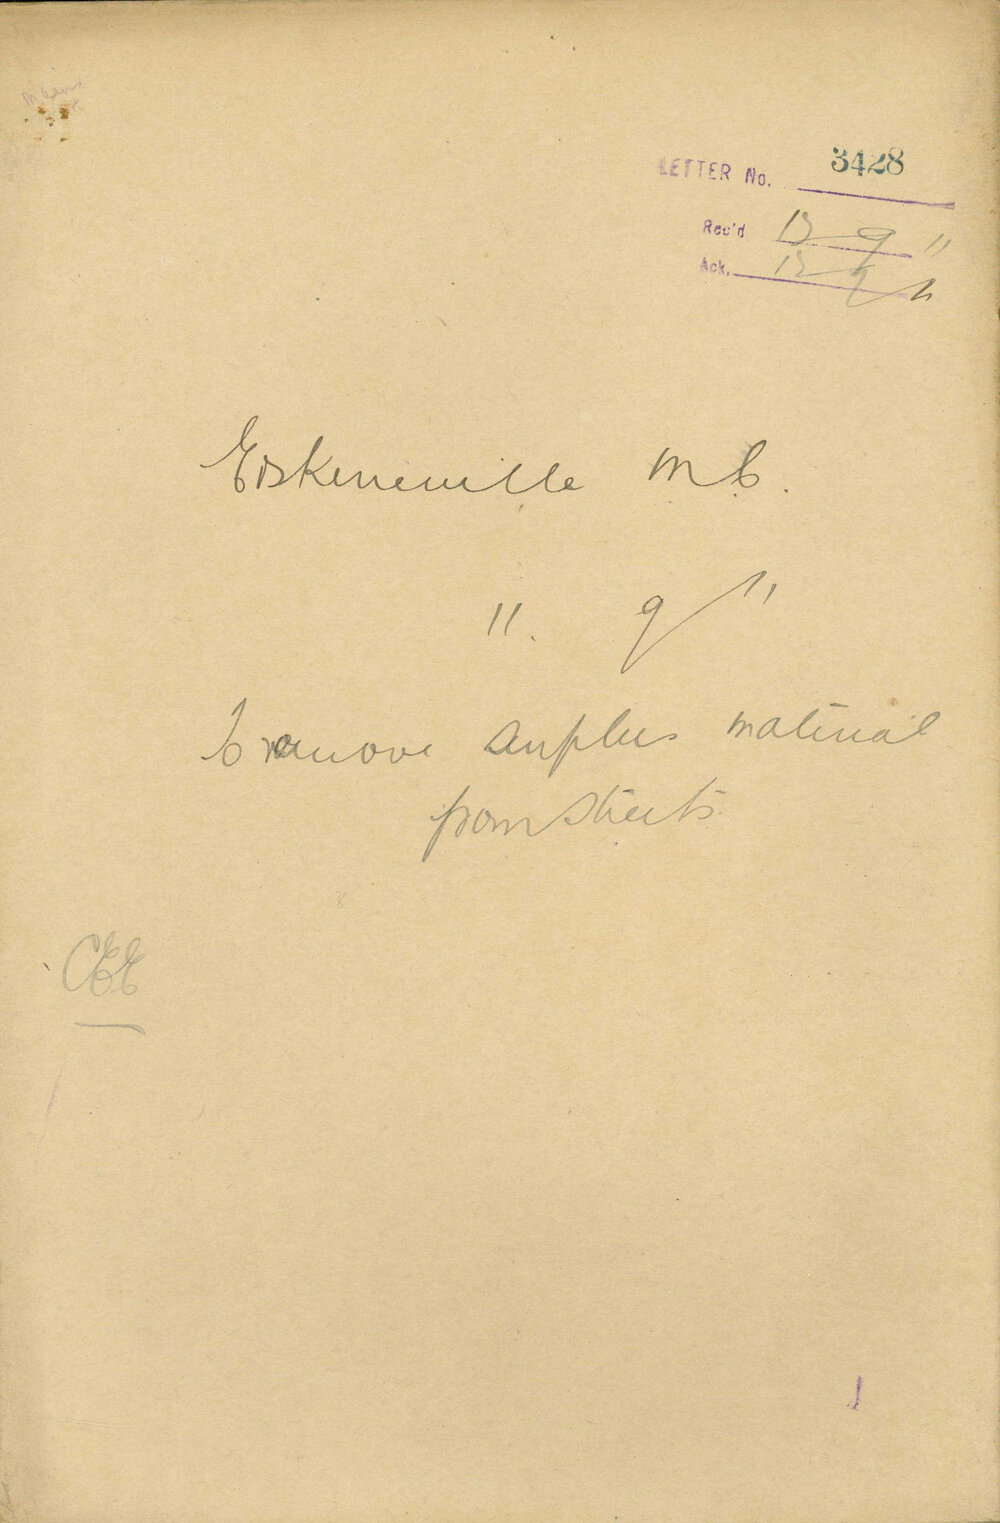 LETTER No. 3428
Rec'd 13 9 11
Ack. 13 9 11
Erskineville M C.
11. 9 11
To remove surplus material
from streets
CEE